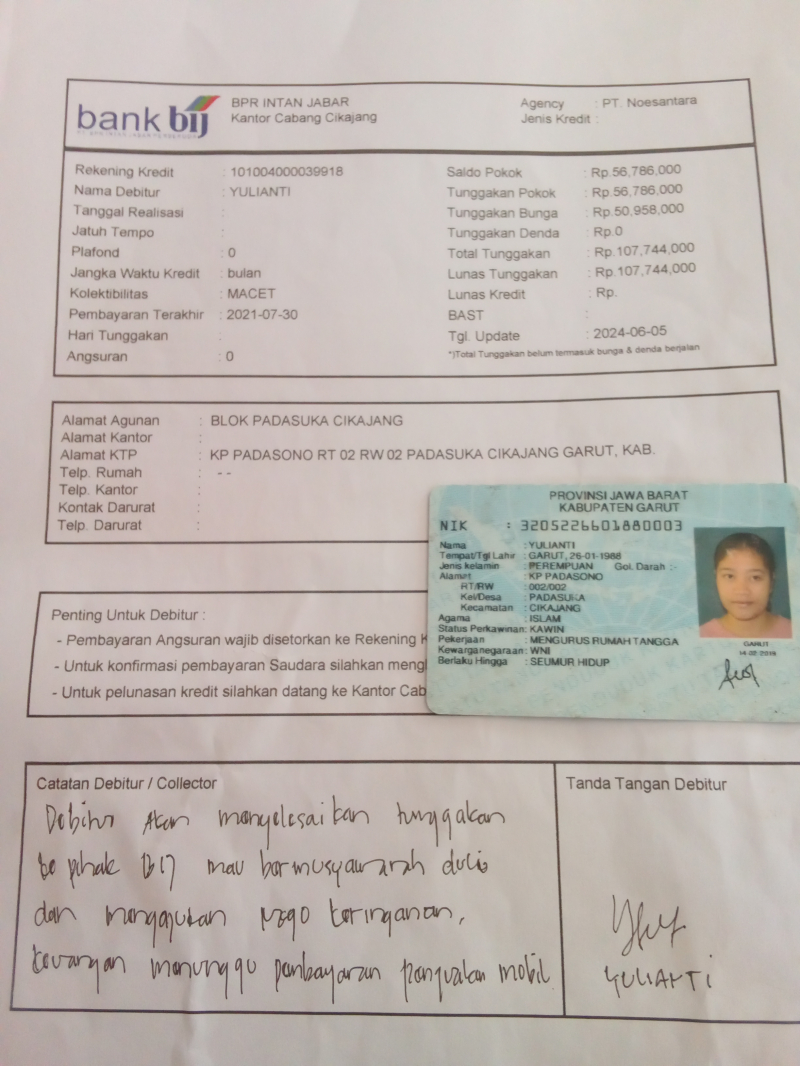 bank bij
BPR INTAN JABAR
Kantor Cabang Cikajang
Agency : PT. Noesantara
Jenis Kredit :
Rekening Kredit : 101004000039918
Nama Debitur : YULIANTI
Tanggal Realisasi :
Jatuh Tempo :
Plafond : 0
Jangka Waktu Kredit : bulan
Kolektibilitas : MACET
Pembayaran Terakhir : 2021-07-30
Hari Tunggakan :
Angsuran : 0
Saldo Pokok : Rp.56,786,000
Tunggakan Pokok : Rp.56,786,000
Tunggakan Bunga : Rp.50,958,000
Tunggakan Denda : Rp.0
Total Tunggakan : Rp.107,744,000
Lunas Tunggakan : Rp.107,744,000
Lunas Kredit : Rp.
BAST :
Tgl. Update : 2024-06-05
*)Total Tunggakan belum termasuk bunga & denda berjalan
Alamat Agunan : BLOK PADASUKA CIKAJANG
Alamat Kantor :
Alamat KTP : KP PADASONO RT 02 RW 02 PADASUKA CIKAJANG GARUT, KAB.
Telp. Rumah : - -
Telp. Kantor :
Kontak Darurat :
Telp. Darurat :
PROVINSI JAWA BARAT
KABUPATEN GARUT
NIK : 3205226601880003
Nama : YULIANTI
Tempat/Tgl Lahir : GARUT, 26-01-1988
Jenis kelamin : PEREMPUAN Gol. Darah :-
Alamat : KP PADASONO
RT/RW : 002/002
Kel/Desa : PADASUKA
Kecamatan : CIKAJANG
Agama : ISLAM
Status Perkawinan: KAWIN
Pekerjaan : MENGURUS RUMAH TANGGA
Kewarganegaraan: WNI
Berlaku Hingga : SEUMUR HIDUP
GARUT
Penting Untuk Debitur :
- Pembayaran Angsuran wajib disetorkan ke Rekening
- Untuk konfirmasi pembayaran Saudara silahkan
- Untuk pelunasan kredit silahkan datang ke Kantor
Catatan Debitur / Collector
Debitur Akan menyelesaikan tunggakan
ke pihak BIJ mau bermusyawarah dulu
dan mengajukan nego keringanan,
keuangan menunggu pembayaran penjualan mobil
Tanda Tangan Debitur
YULIANTI